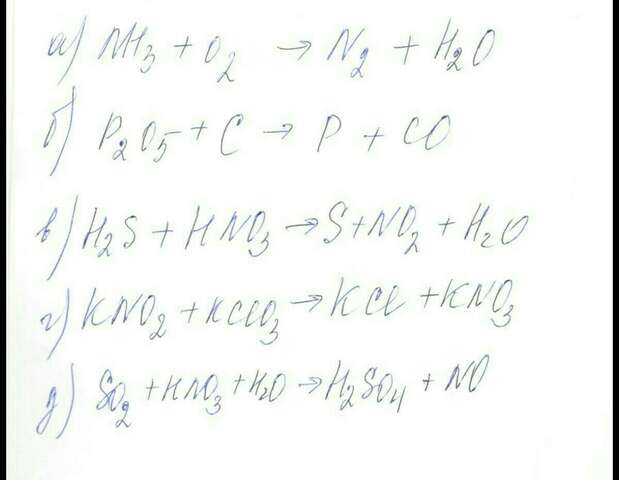 а) NH3 + O2 → N2 + H2O
б) P2O5 + C → P + CO
в) H2S + HNO3 → S + NO2 + H2O
г) KNO2 + KClO3 → KCl + KNO3
д) SO2 + HNO3 + H2O → H2SO4 + NO